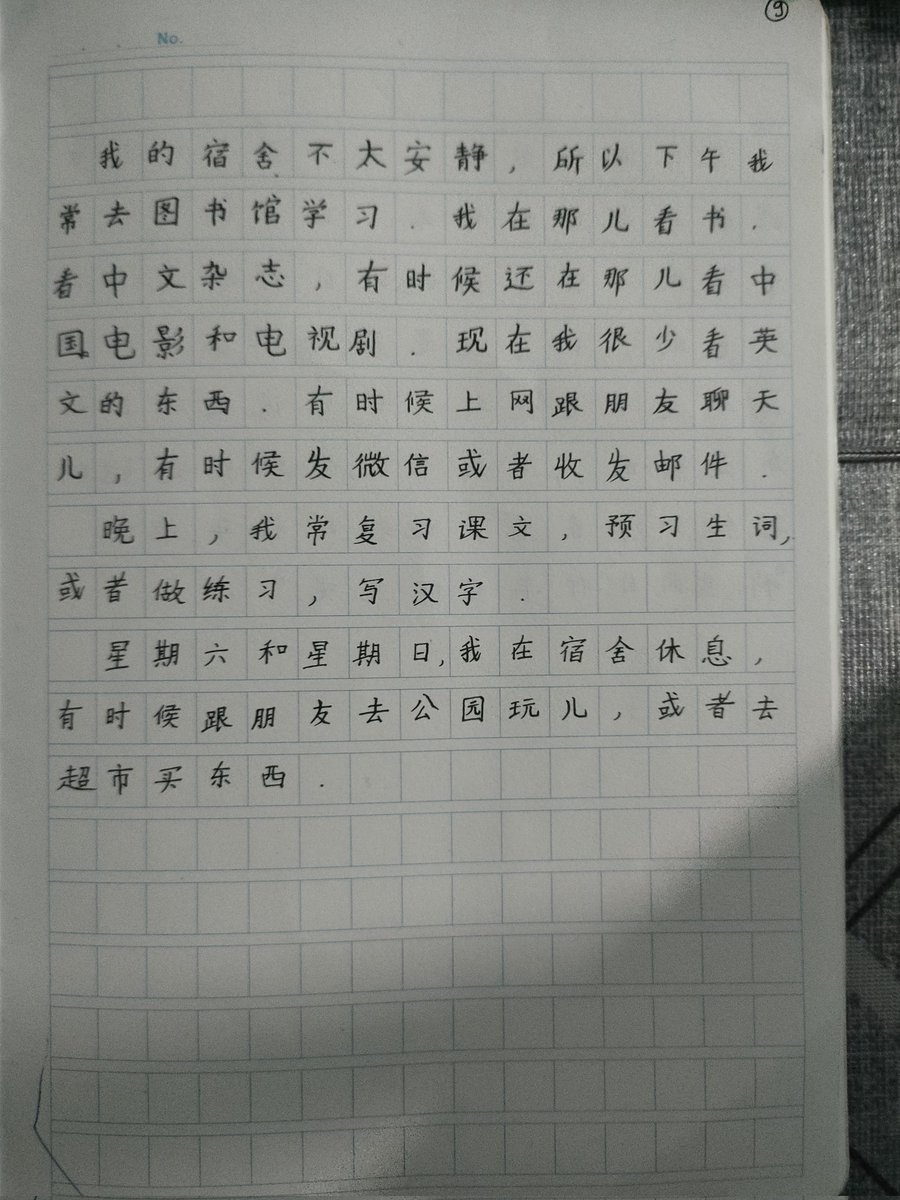 ⑨
No.
我的宿舍不太安静，所以下午我
常去图书馆学习．我在那儿看书．
看中文杂志，有时候还在那儿看中
国电影和电视剧．现在我很少看英
文的东西．有时候上网跟朋友聊天
儿，有时候发微信或者收发邮件．
晚上，我常复习课文，预习生词，
或者做练习，写汉字．
星期六和星期日，我在宿舍休息，
有时候跟朋友去公园玩儿，或者去
超市买东西．